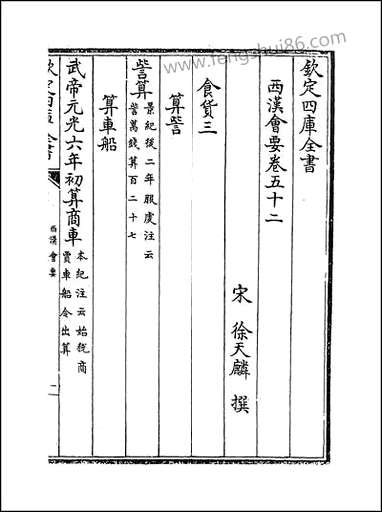 www.fengshui86.com
欽定四庫全書
西漢會要卷五十二
宋 徐天麟 撰
食貨三
算訾
訾算 景紀後二年服虔注云
訾萬錢算百二十七
算車船
武帝元光六年初算商車 本紀注云始稅商
賈車船令出算
欽定四庫全書
西漢會要
一